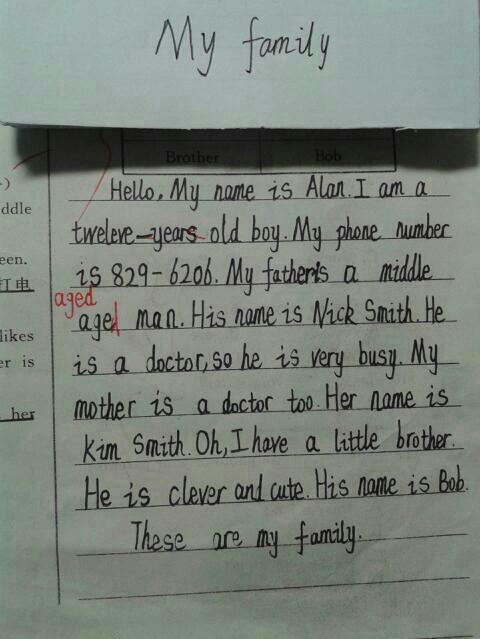 My family
Brother Bob
Hello, My name is Alan. I am a
tweleve-years old boy. My phone number
is 829-6206. My father's a middle
aged
aged man. His name is Nick Smith. He
is a doctor, so he is very busy. My
mother is a doctor too. Her name is
Kim Smith. Oh, I have a little brother.
He is clever and cute. His name is Bob.
These are my family.
ddle
een.
打电
likes
er is
her